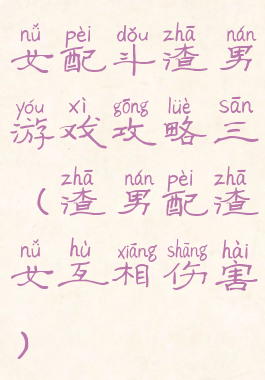 nǚ pèi dǒu zhā nán
女配斗渣男
yóu xì gōng lüè sān
游戏攻略三
zhā nán pèi zhā
(渣男配渣
nǚ hù xiāng shāng hài
女互相伤害
)